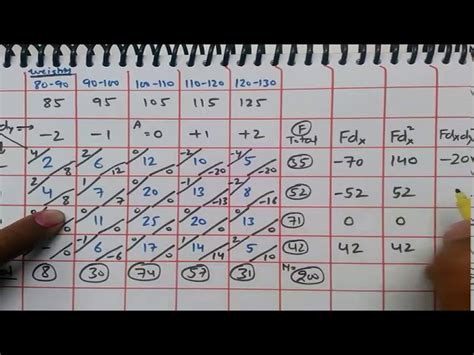 weights
80-90 90-100 100-110 110-120 120-130
85 95 105 115 125
dy -2 -1 A=0 +1 +2 F Total Fdx Fdx² Fdxdy
4 2 8 2 6 12 0 12 0 -2 10 -20 -4 5 -20 35 -70 140 -20
2 4 8 1 7 7 0 20 0 -1 13 -13 -2 8 -16 52 -52 52
0 0 11 0 0 25 0 0 20 0 0 13 0 71 0 0
-1 6 -6 0 17 0 1 14 14 2 5 10 42 42 42
8 30 74 57 31 N=200